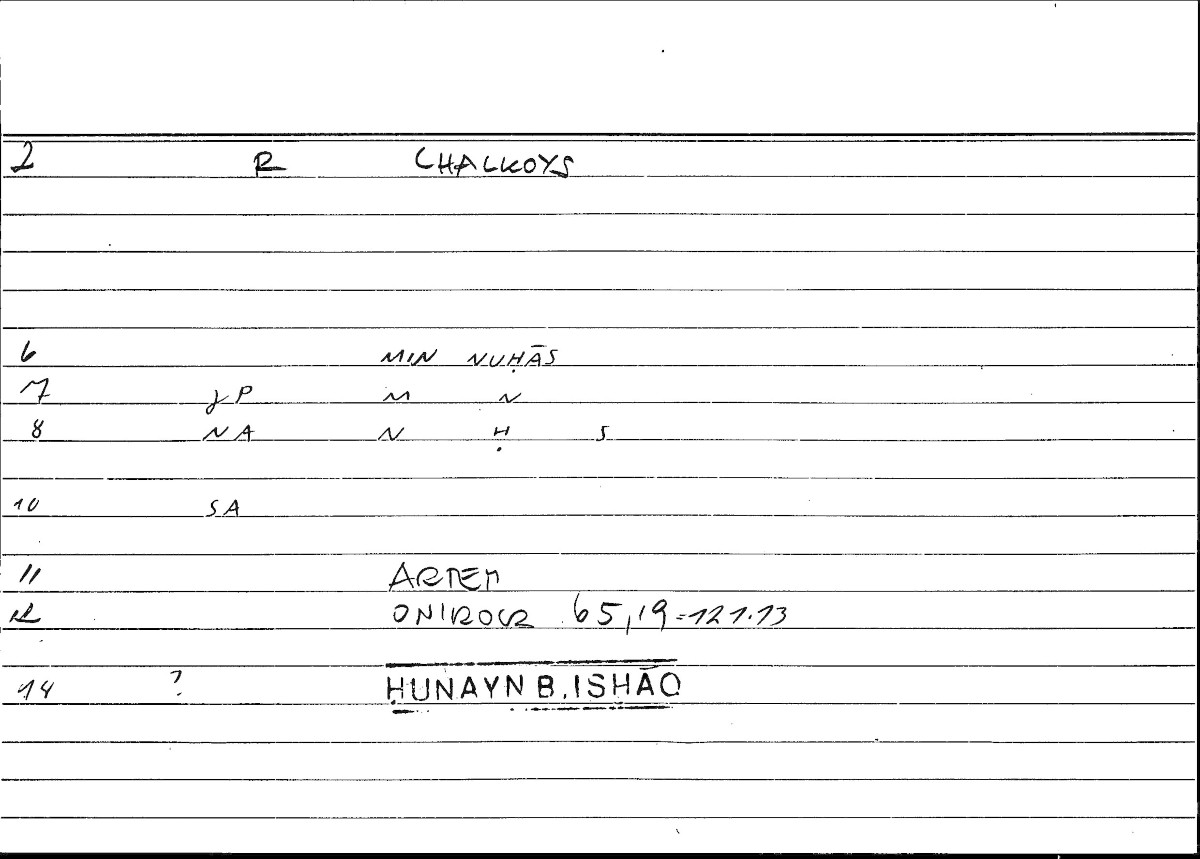 2 R CHALKOYS
6 MIN NUḤĀS
7 γP M N
8 NA N Ḥ S
10 SA
11 ARTEM
12 ONIROCR 65,19=121.13
14 ? ḤUNAYN B. ISḤĀQ